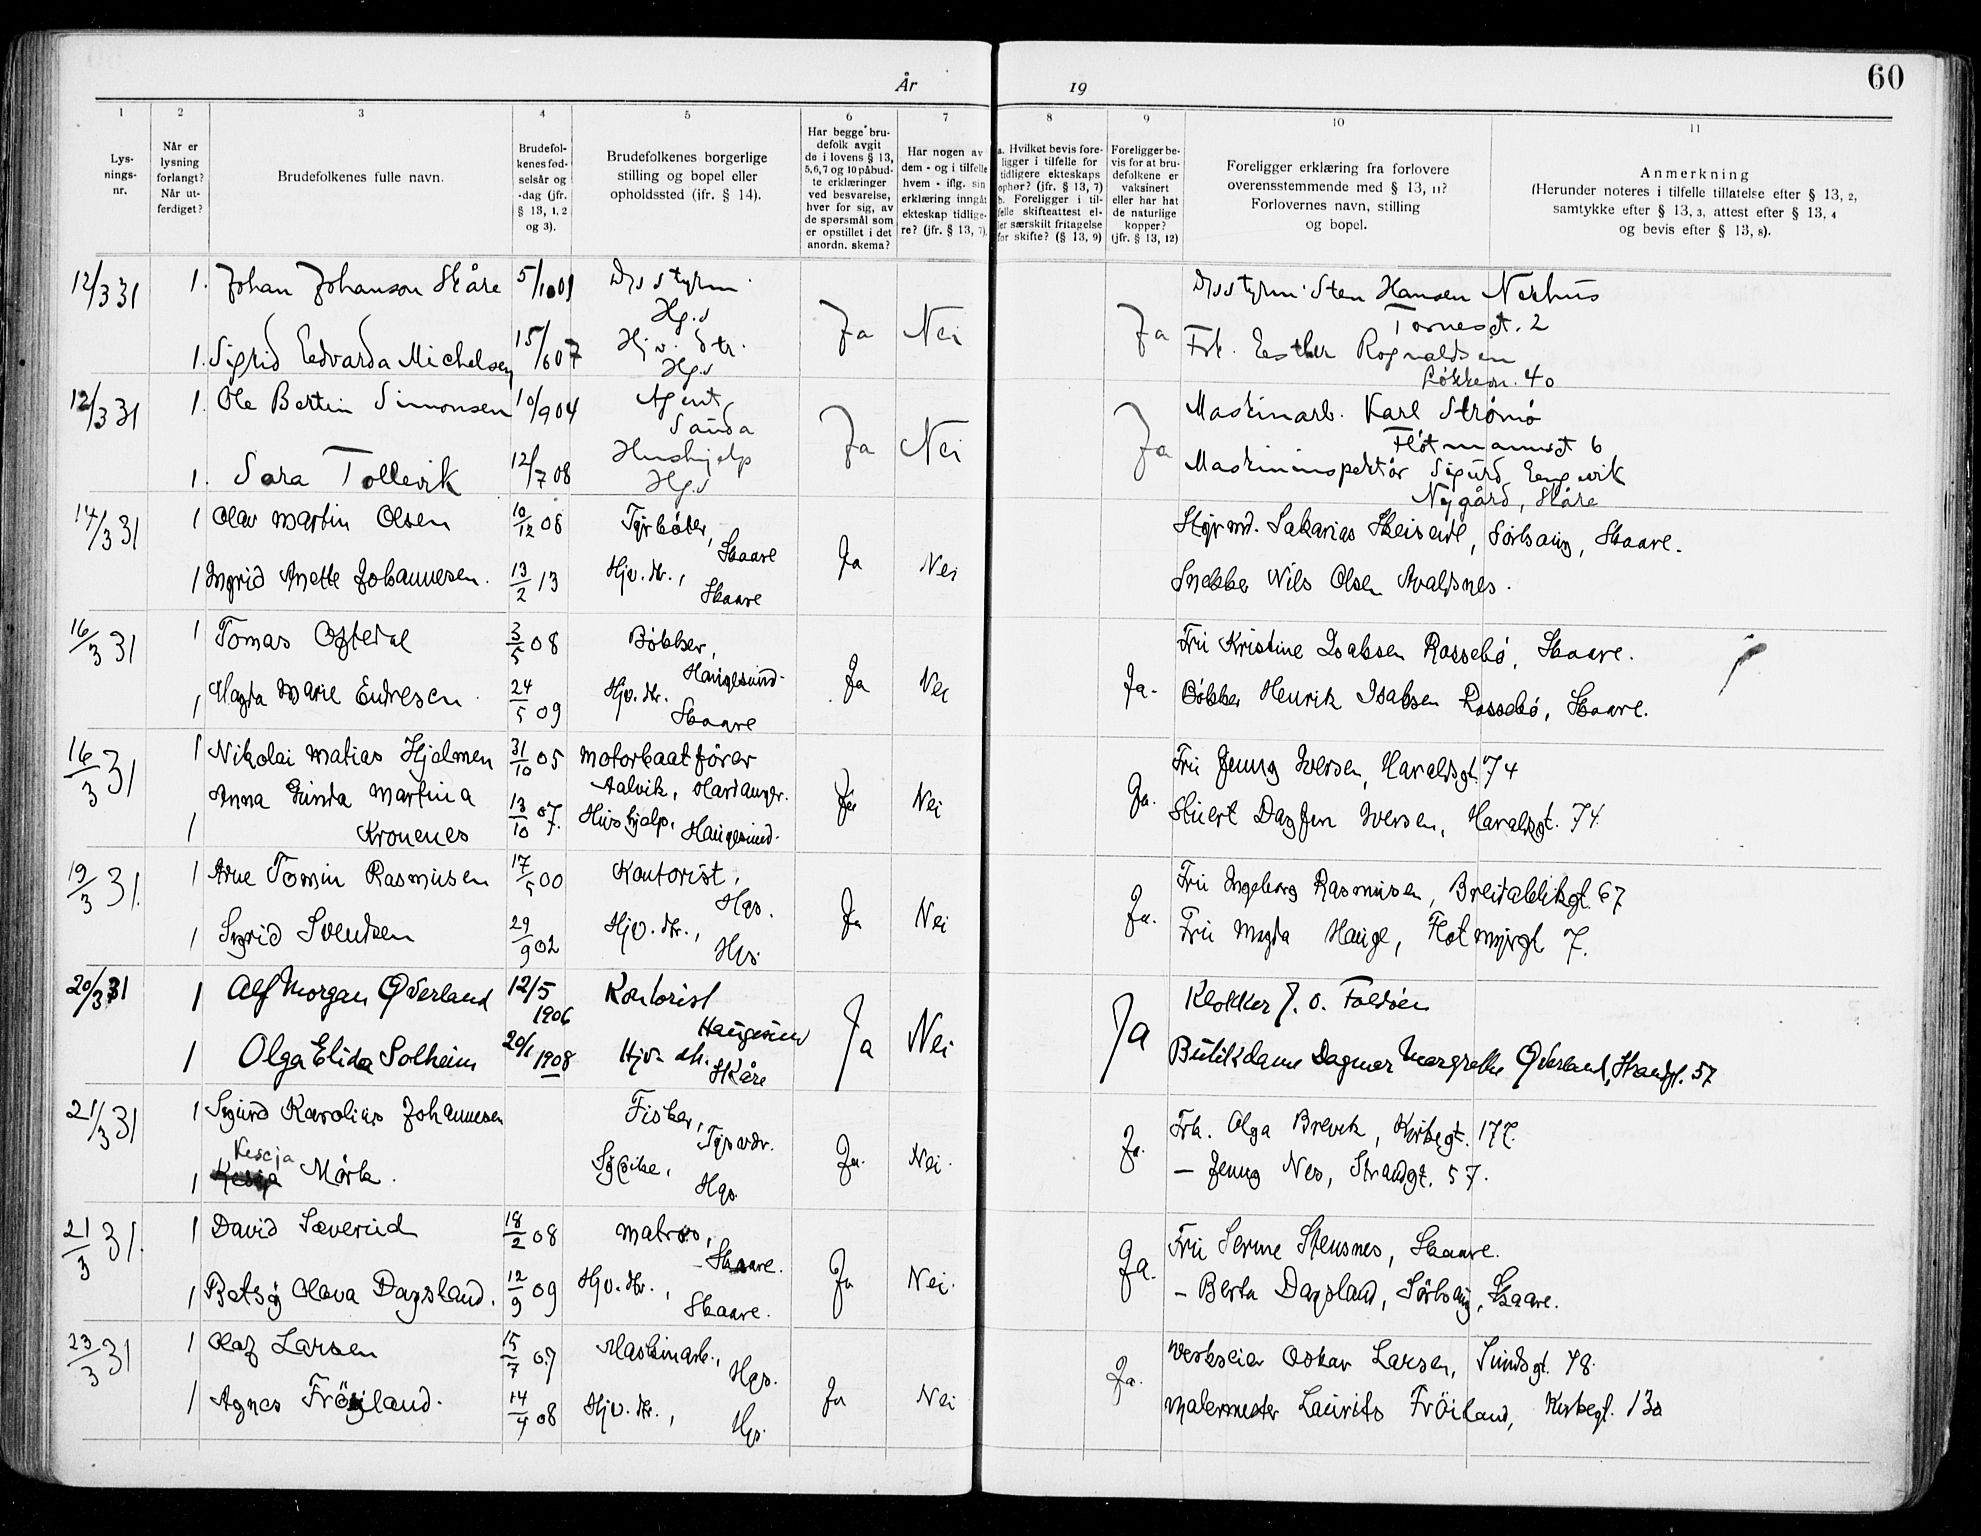 60
År 19
1 2 3 4 5 6 7 8 9 10 11
Lys-
nings-
nr.
Når er
lysning
forlangt?
Når ut-
ferdiget?
Brudefolkenes fulle navn.
Brudefol-
kenes fød-
selsår og
-dag (jfr.
§ 13, 1, 2
og 3).
Brudefolkenes borgerlige
stilling og bopel eller
opholdssted (ifr. § 14).
Har begge bru-
defolk avgit
de i lovens § 13,
5,6,7 og 10 påbud-
te erklæringer
ved besvarelse,
hver for sig, av
de spørsmål som
er opstillet i det
anordn. skema?
Har nogen av
dem - og i tilfelle
hvem - iflg. sin
erklæring inngåt
ekteskap tidlige-
re? (jfr. § 13, 7).
a. Hvilket bevis fore-
ligger i tilfelle for
tidligere ekteskaps
ophør? (jfr. § 13, 7)
b. Foreligger i til-
felle skifteattest el-
ler særskilt fritagelse
for skifte? (§ 13, 9)
Foreligger be-
vis for at bru-
defolkene er
vaksinert
eller har hat
de naturlige
kopper?
(jfr. § 13, 12)
Foreligger erklæring fra forlovere
overensstemmende med § 13, 11?
Forlovernes navn, stilling
og bopel.
Anmerkning
(Herunder noteres i tilfelle tillatelse efter § 13, 2,
samtykke efter § 13, 3, attest efter § 13, 4
og bevis efter § 13, 8).
12/3 31 1. Johan Johanson Skåre 5/10 01 styrm. Hg.s Ja Nei Ja styrm. Sten Hansen Nerhus
2
1. Sigrid Edvarda Michelsen 15/6 07 Hjv. dtr. Hg.s Frk. Esther Rognaldsen
40
12/3 31 1. Ole Bertin Simonsen 10/9 04 Agent, Sauda Ja Nei Ja Maskinarb. Karl Strømø
Flotmannsgt 6
1. Sara Tollevik 12/7 08 Hushjelp Hg.s Maskininspektør Sigurd Engevik
Nygård, Skåre
14/3 31 1 Olav Martin Olsen 10/12 08 Tyrbøter, Skaare Ja Nei Styrmd. Sakarias Skeiseid, Sørhaug, Skaare.
1 Ingrid Anette Johannesen. 13/2 13 Hjv. dtr., Skaare Snekker Nils Olsen Avaldsnes.
16/3 31 1 Tomas Oftedal 3/5 08 Bøkker, Haugesund Ja Nei Ja. Fru Kristine Isaksen Rossebø, Skaare.
1 Magda Marie Endresen 24/5 09 Hjv. dtr. Skaare Bøkker Henrik Isaksen Rossebø, Skaare.
16/3 31 1 Nikolai Matias Hjelmen 31/10 05 Motorbaatfører Aalvik, Hardanger. Ja Nei Ja. Fru Jenny Iversen, Haraldsgt. 74
1 Anna Gunda Martina
Kronenes 13/10 07. Hushjelp, Haugesund. Stuert Dagfin Iversen, Haraldsgt. 74.
19/3 31. 1 Arne Tomin Rasmussen 17/5 00 Kontorist, Hgs. Ja Nei Ja. Fru Ingeborg Rasmussen, Breidablikgt. 67
1 Sigrid Svendsen 29/9 02 Hjv. dtr., Hgs. Fru Magda Hauge, Flotmyrgt 7.
20/3 31 1 Alf Morgan Øverland 12/5 1906 Kontorist Haugesund Ja Nei Ja Klokker J. O. Foldøen
1 Olga Elida Solheim 20/1 1908 Hjv. dtr. Skåre Butikdame Dagmar Margrethe Øverland, 57
21/3 31 1 Sigurd Karolius Johannesen Fisker, Tysvær. Ja. Nei. Ja. Frk. Olga Brevik, Kirkegt. 177.
1 Kescja Mørk. Sypike, Hgs. — Jenny Nes, Strandgt. 57.
21/3 31. 1 David Sæverud 18/2 08 Matros, Skaare. Ja Nei. Ja. Fru Serine Stensnes, Skaare.
1 Betsy Olava Dagsland. 12/9 09 Hjv. dtr., Skaare. — Berta Dagsland, Sörhaug, Skaare.
23/3 31 1 Olaf Larsen 15/7 07 Maskinarb., Hgs. Ja Nei Ja. Verkseier Oskar Larsen, Sundsgt. 78.
1 Agnes Fröiland. 14/4 08 Hjv. dtr., Hgs. Malermester Laurits Fröiland, Kirkegt. 13a